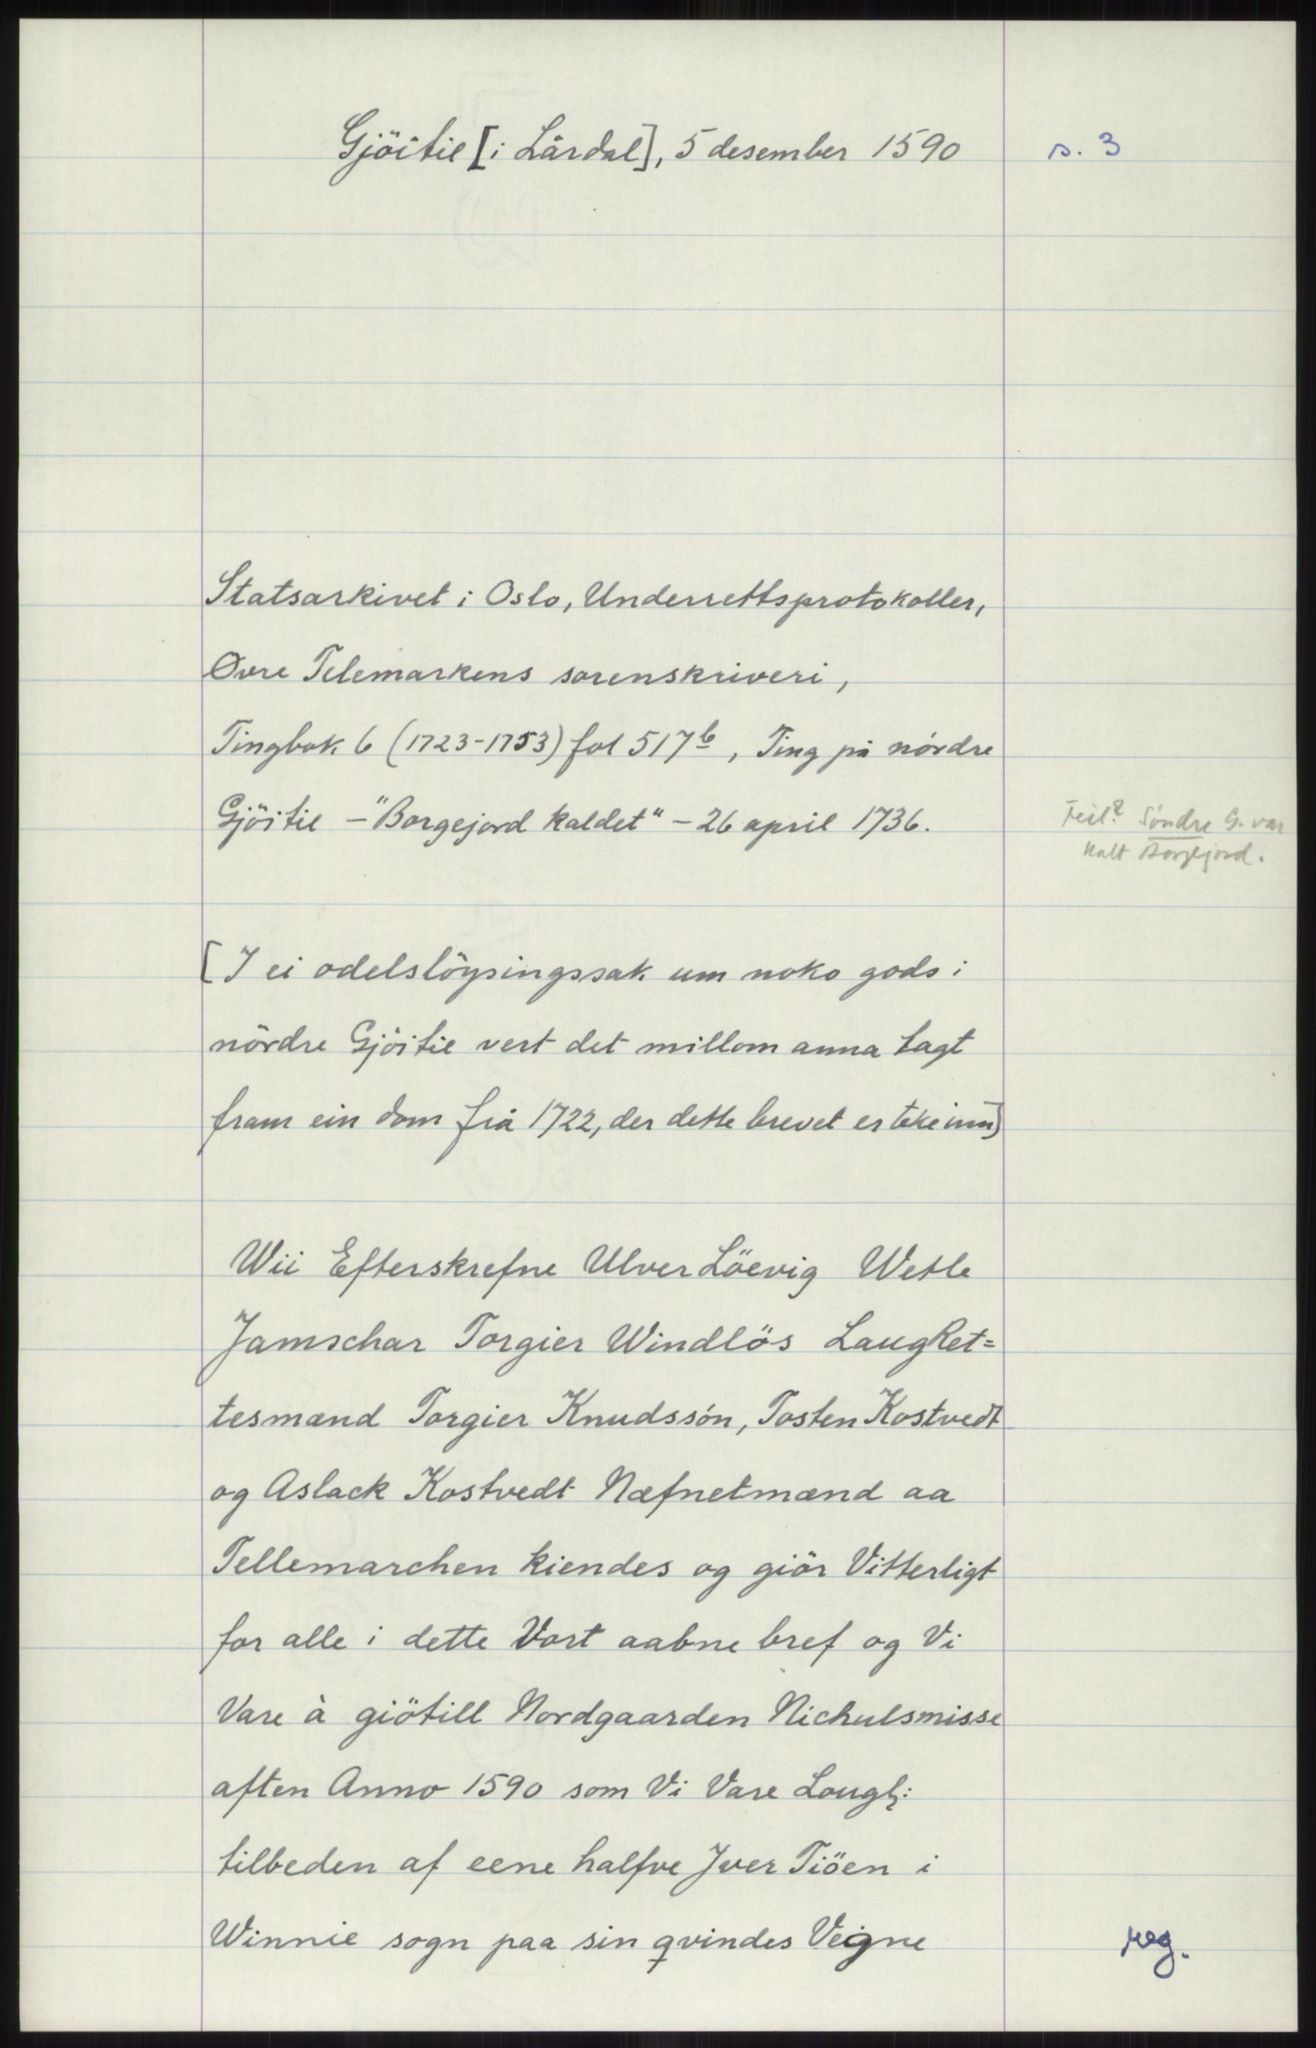 Gjöitil [i Lårdal], 5 desember 1590
s. 3
Statsarkivet i Oslo, Underrettsprotokoller,
Øvre Telemarkens sorenskriveri,
Tingbok 6 (1723-1753) fol 517b, Ting på nórdre
Gjöitil - "Borgejord kaldet" - 26 april 1736.
Feil? Söndre G. var
kalt Borgejord.
[I ei odelslöysingssak um noko gods i
nördre Gjöitil vert det millom anna lagt
fram ein dom frå 1722, der dette brevet er teke inn]
Wii Efterskrefne Ulver Löevig Wetle
Jamschar Torgier Windlös LaugRet=
tesmænd Torgier Knudssón, Tosten Kostvedt
og Aslack Kostvedt Næfnetmænd aa
Tellemarchen kiendes og giör Vitterligt
for alle i dette Vort aabne bref og Vi
Vare à giötill Nordgaarden Nichulsmisse
aften Anno 1590 som Vi Vare Lougl:
tilbeden af eene halfve Jver Tiöen i
Winnie sogn paa sin qvindes Veigne
reg.